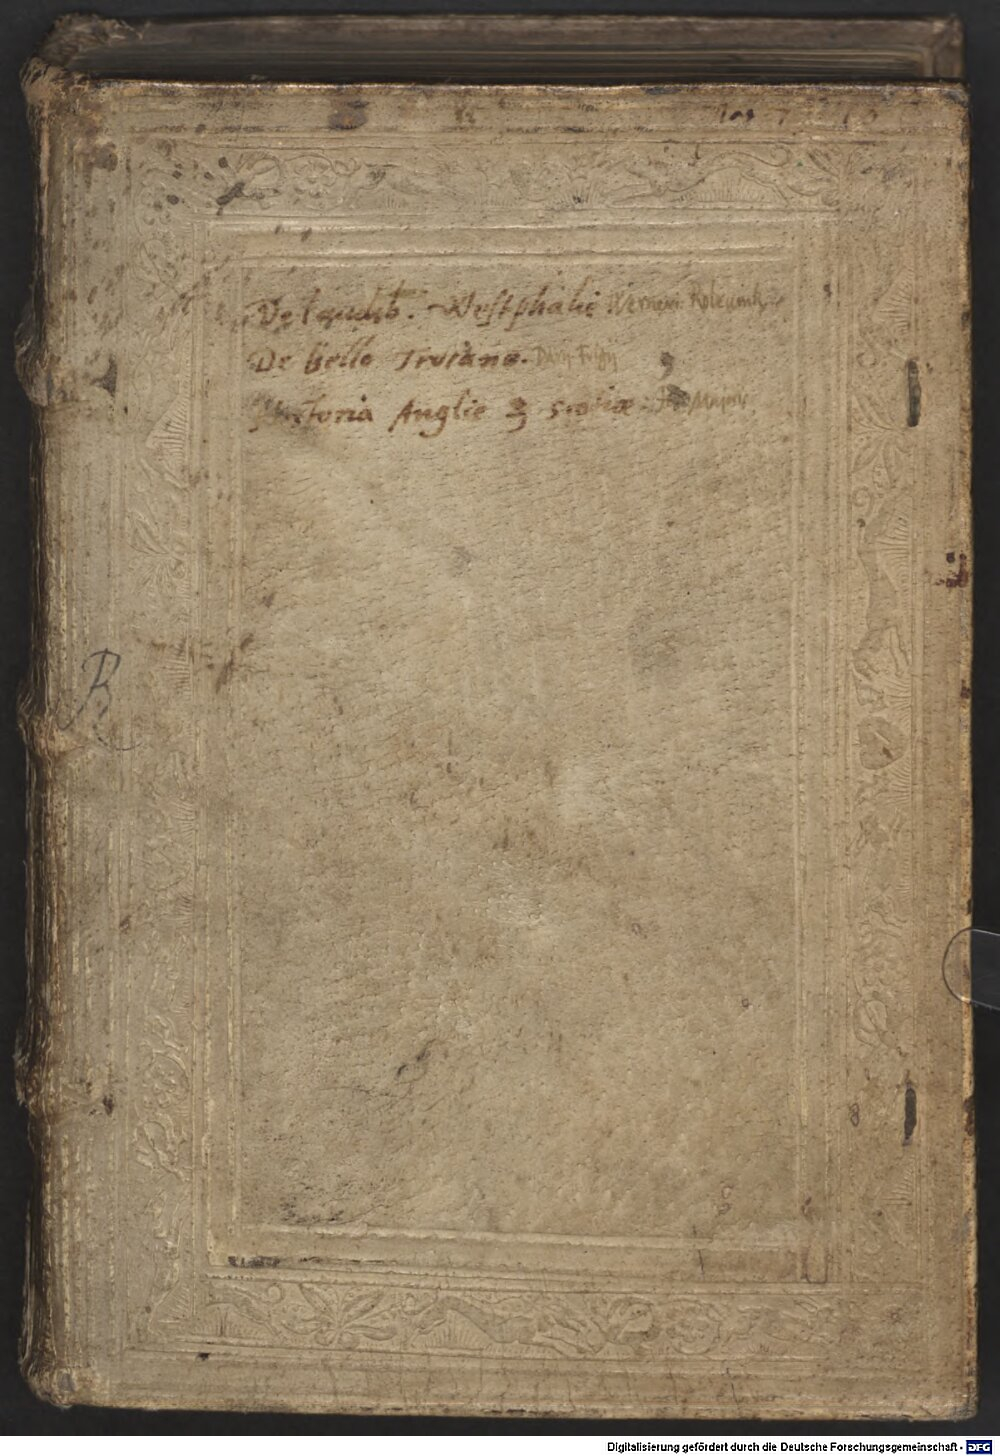 De laudib. Westphalie Werneri Rolevinck
De bello Troiano. Dary Frigij
Historia Anglie & Scotiae: Jo: Majoris
R
Digitalisierung gefördert durch die Deutsche Forschungsgemeinschaft - DFG